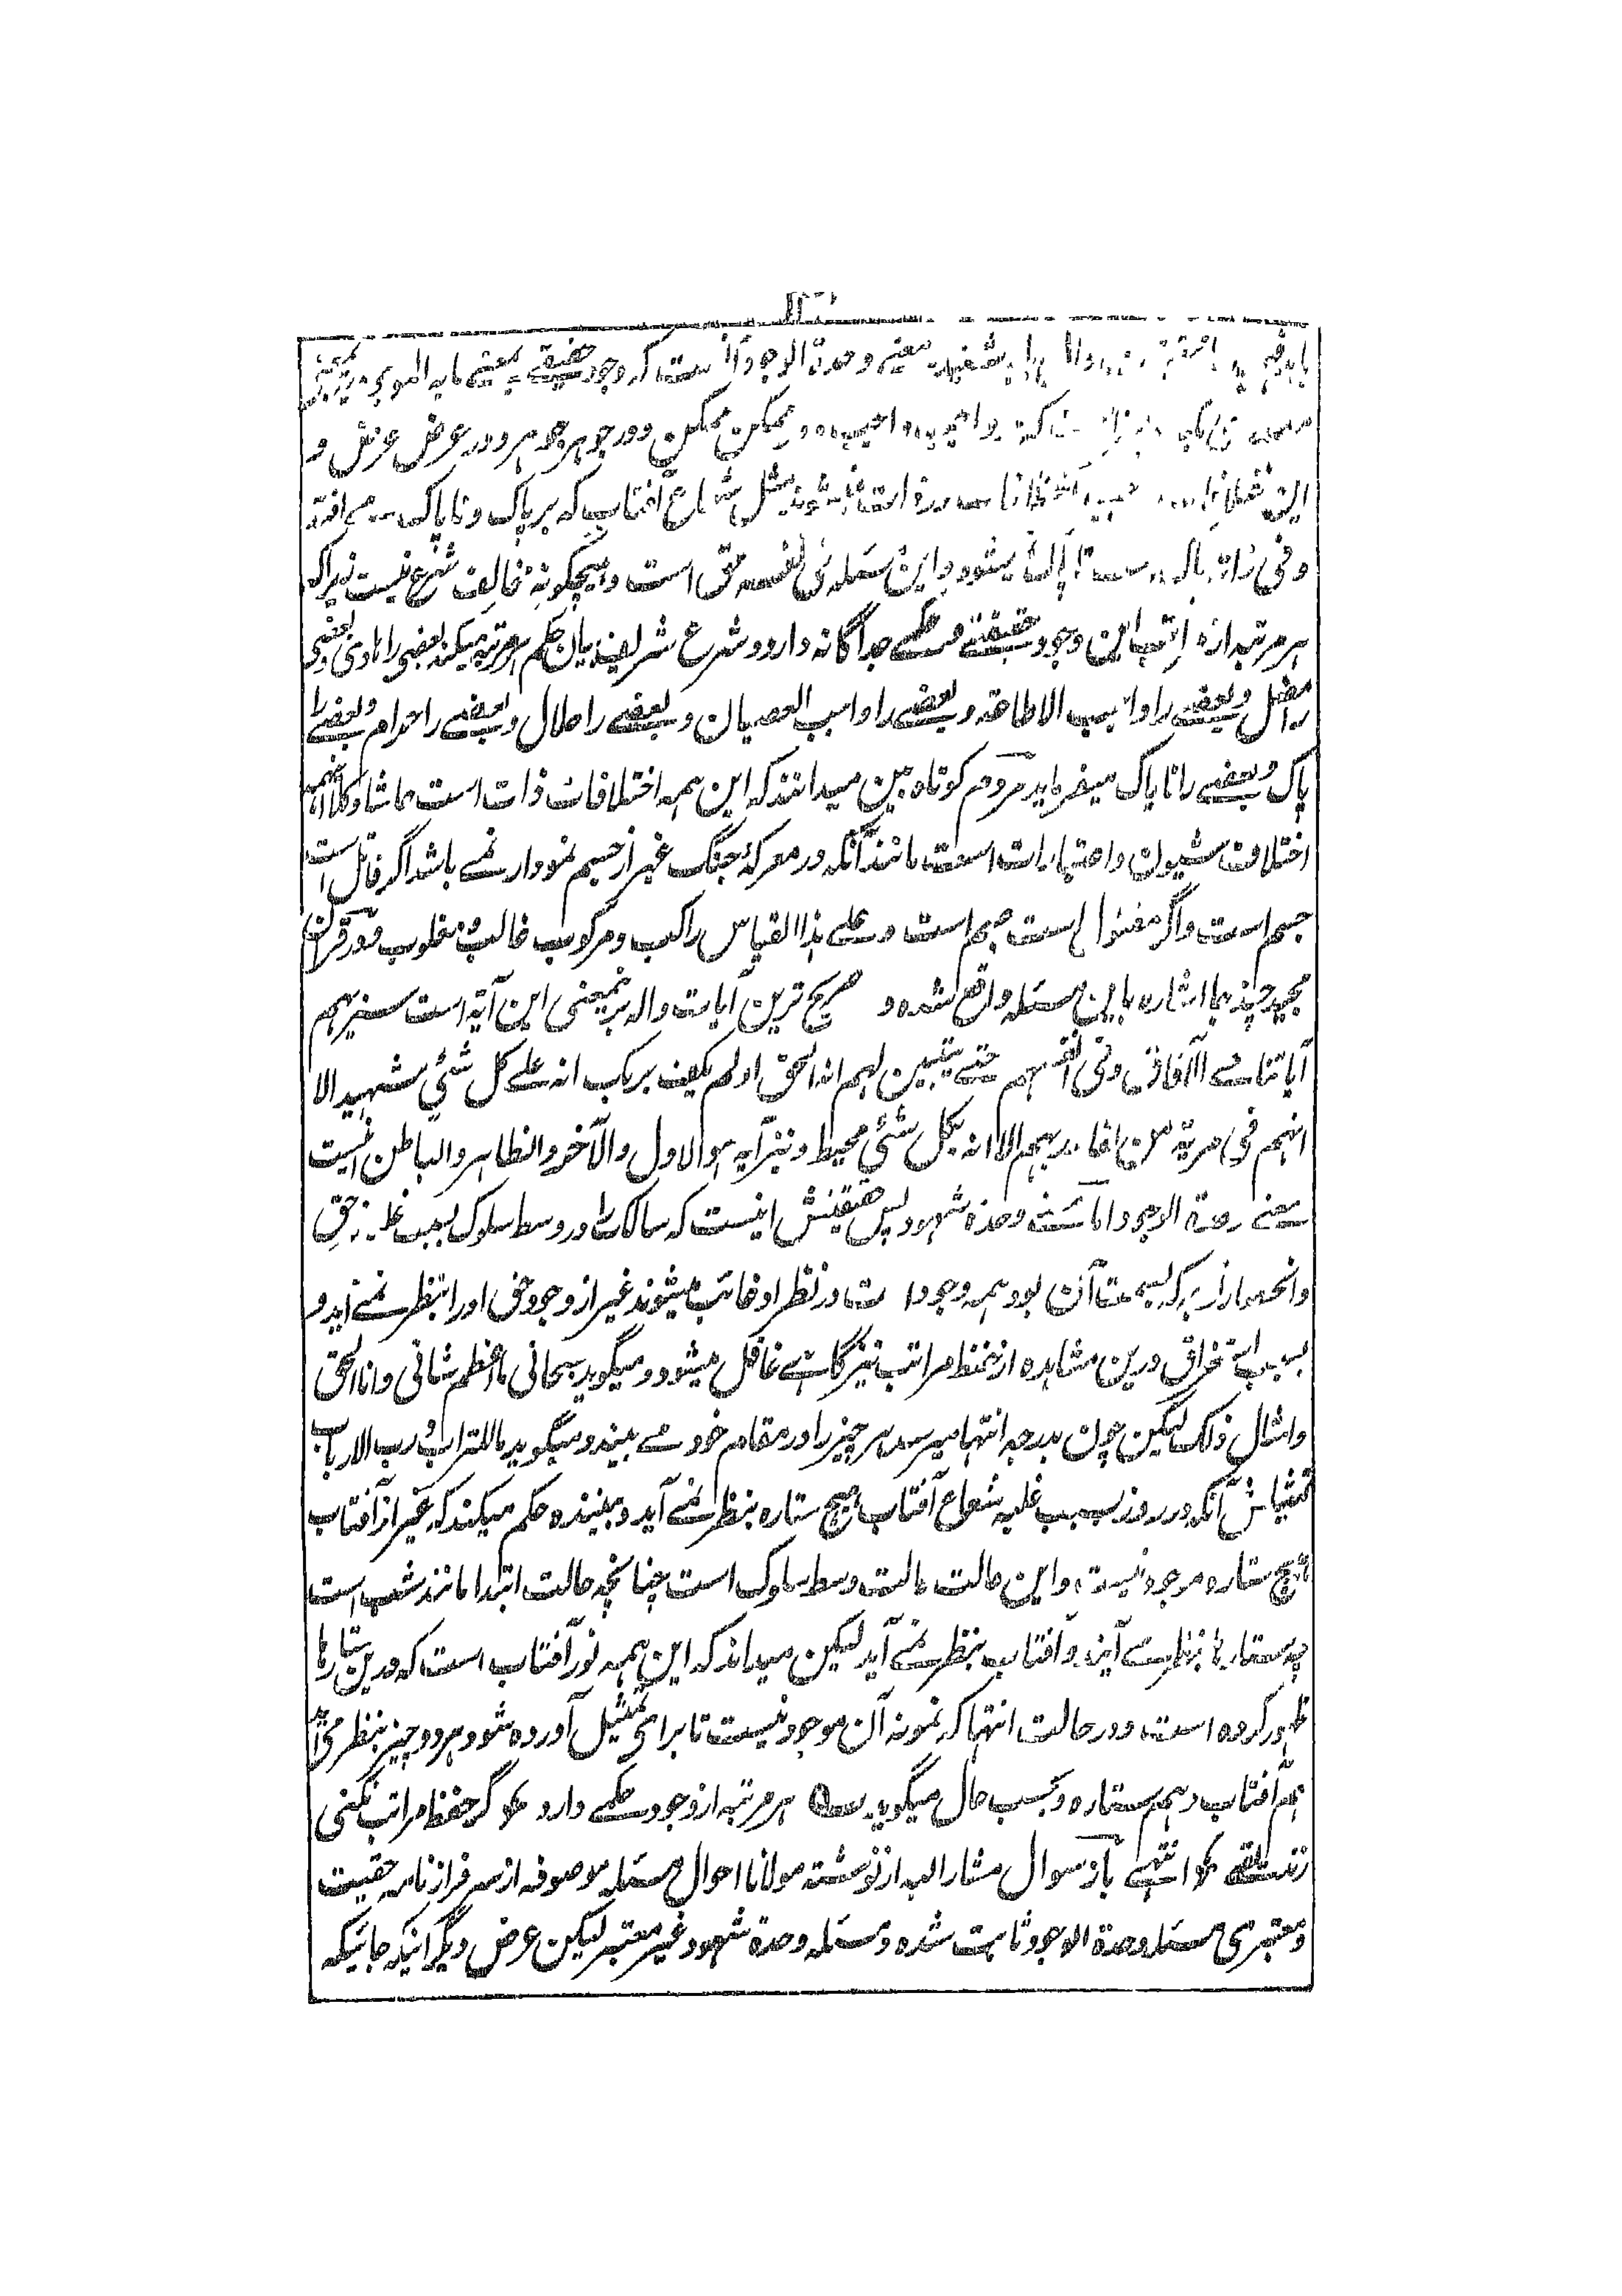 معنے وحدة الوجود آنست که وجود حقیقے بمعنے مابه الموجودیة
واجب و در ممکن ممکن و در جوهر جوهر و در عرض عرض و
این مثل شعاع آفتاب که بر پاک و ناپاک مے افتد
و فی ذاته ناپاک نمیشود و این مسئله فی نفسه حق است و هیچگونه مخالف شرع نیست زیراکه
هر مرتبه از مراتب این وجود حقیقتے و حکمے جداگانه دارد و شرع شریف بیان حکم هر مرتبه میکند بعضی را هادی و بعضی
را مضل و بعضے را واجب الاطاعة و بعضے را واجب العصیان و بعضے را حلال و بعضے را حرام و بعضے را
پاک و بعضے را ناپاک میفرماید مردم کوتاه بین میدانند که این همه اختلافات ذات است حاشا وکلا اینهمه
اختلاف شیون و اعتبارات است مانند آنکه در معرکهٔ جنگ غیر از جسم نمودار نمے باشد اگر قاتل است
جسم است و اگر مقتول است جسم است و علے هذا القیاس راکب و مرکوب غالب و مغلوب و در قرآن
مجید چند جا اشاره باین مسئله واقع شده و صریح ترین آیات داله برینمعنی این آیة است سنریهم
آیاتنا فے الآفاق وفی انفسهم حتے یتبین لهم انه الحق اولم یکف بربک انه علے کل شئي شهید الا
انهم فی مریة من لقاء ربهم الا انه بکل شئي محیط و نیز آیه هو الاول والآخر والظاهر والباطن اینست
معنے وحدة الوجود اما معنے وحدة شهود پس حقیقتش اینست که سالک را در وسط سلوک بسبب غلبه
وانحصار نظر که بسمت آن بود همه وجودات در نظر او غائب میشوند غیر از وجود حق او را بنظر نمے آید و
بسبب استغراق درین مشاهده از حفظ مراتب نیز گاهے غافل میشود و میگوید سبحانی ما اعظم شانی و انا الحق
و امثال ذلک لیکن چون بدرجه انتها میرسد هر چیز را در مقام خود مے بیند و میگوید ما للتراب و رب الارباب
تمثیلش آنکه در روز بسبب غلبه شعاع آفتاب هیچ ستاره بنظر نمے آید و بیننده حکم میکند که غیر از آفتاب
هیچ ستاره موجود نیست و این حالت حالت وسط سلوک است چنانچه حالت ابتدا مانند شب است
چه ستارها بنظر مے آیند و آفتاب بنظر نمے آید لیکن میداند که این همه نور آفتاب است که درین ستارها
ظهور کرده است و در حالت انتها که نمونه آن موجود نیست تا برای تمثیل آورده شود هر دو چیز بنظر می آید
هم آفتاب و هم ستاره و بحسب حال میگوید هر مرتبه از وجود حکمے دارد گر حفظ مراتب نکنی
زندیقے انتهے باز سوال مشار الیه از نوشته مولانا احوال مسئله موصوفه از سرفراز نامه حقیت
و معتبری مسئله وحدة الوجود ثابت شده و مسئله وحدة شهود غیر معتبر لیکن عرض دیگر اینکه جائیکه